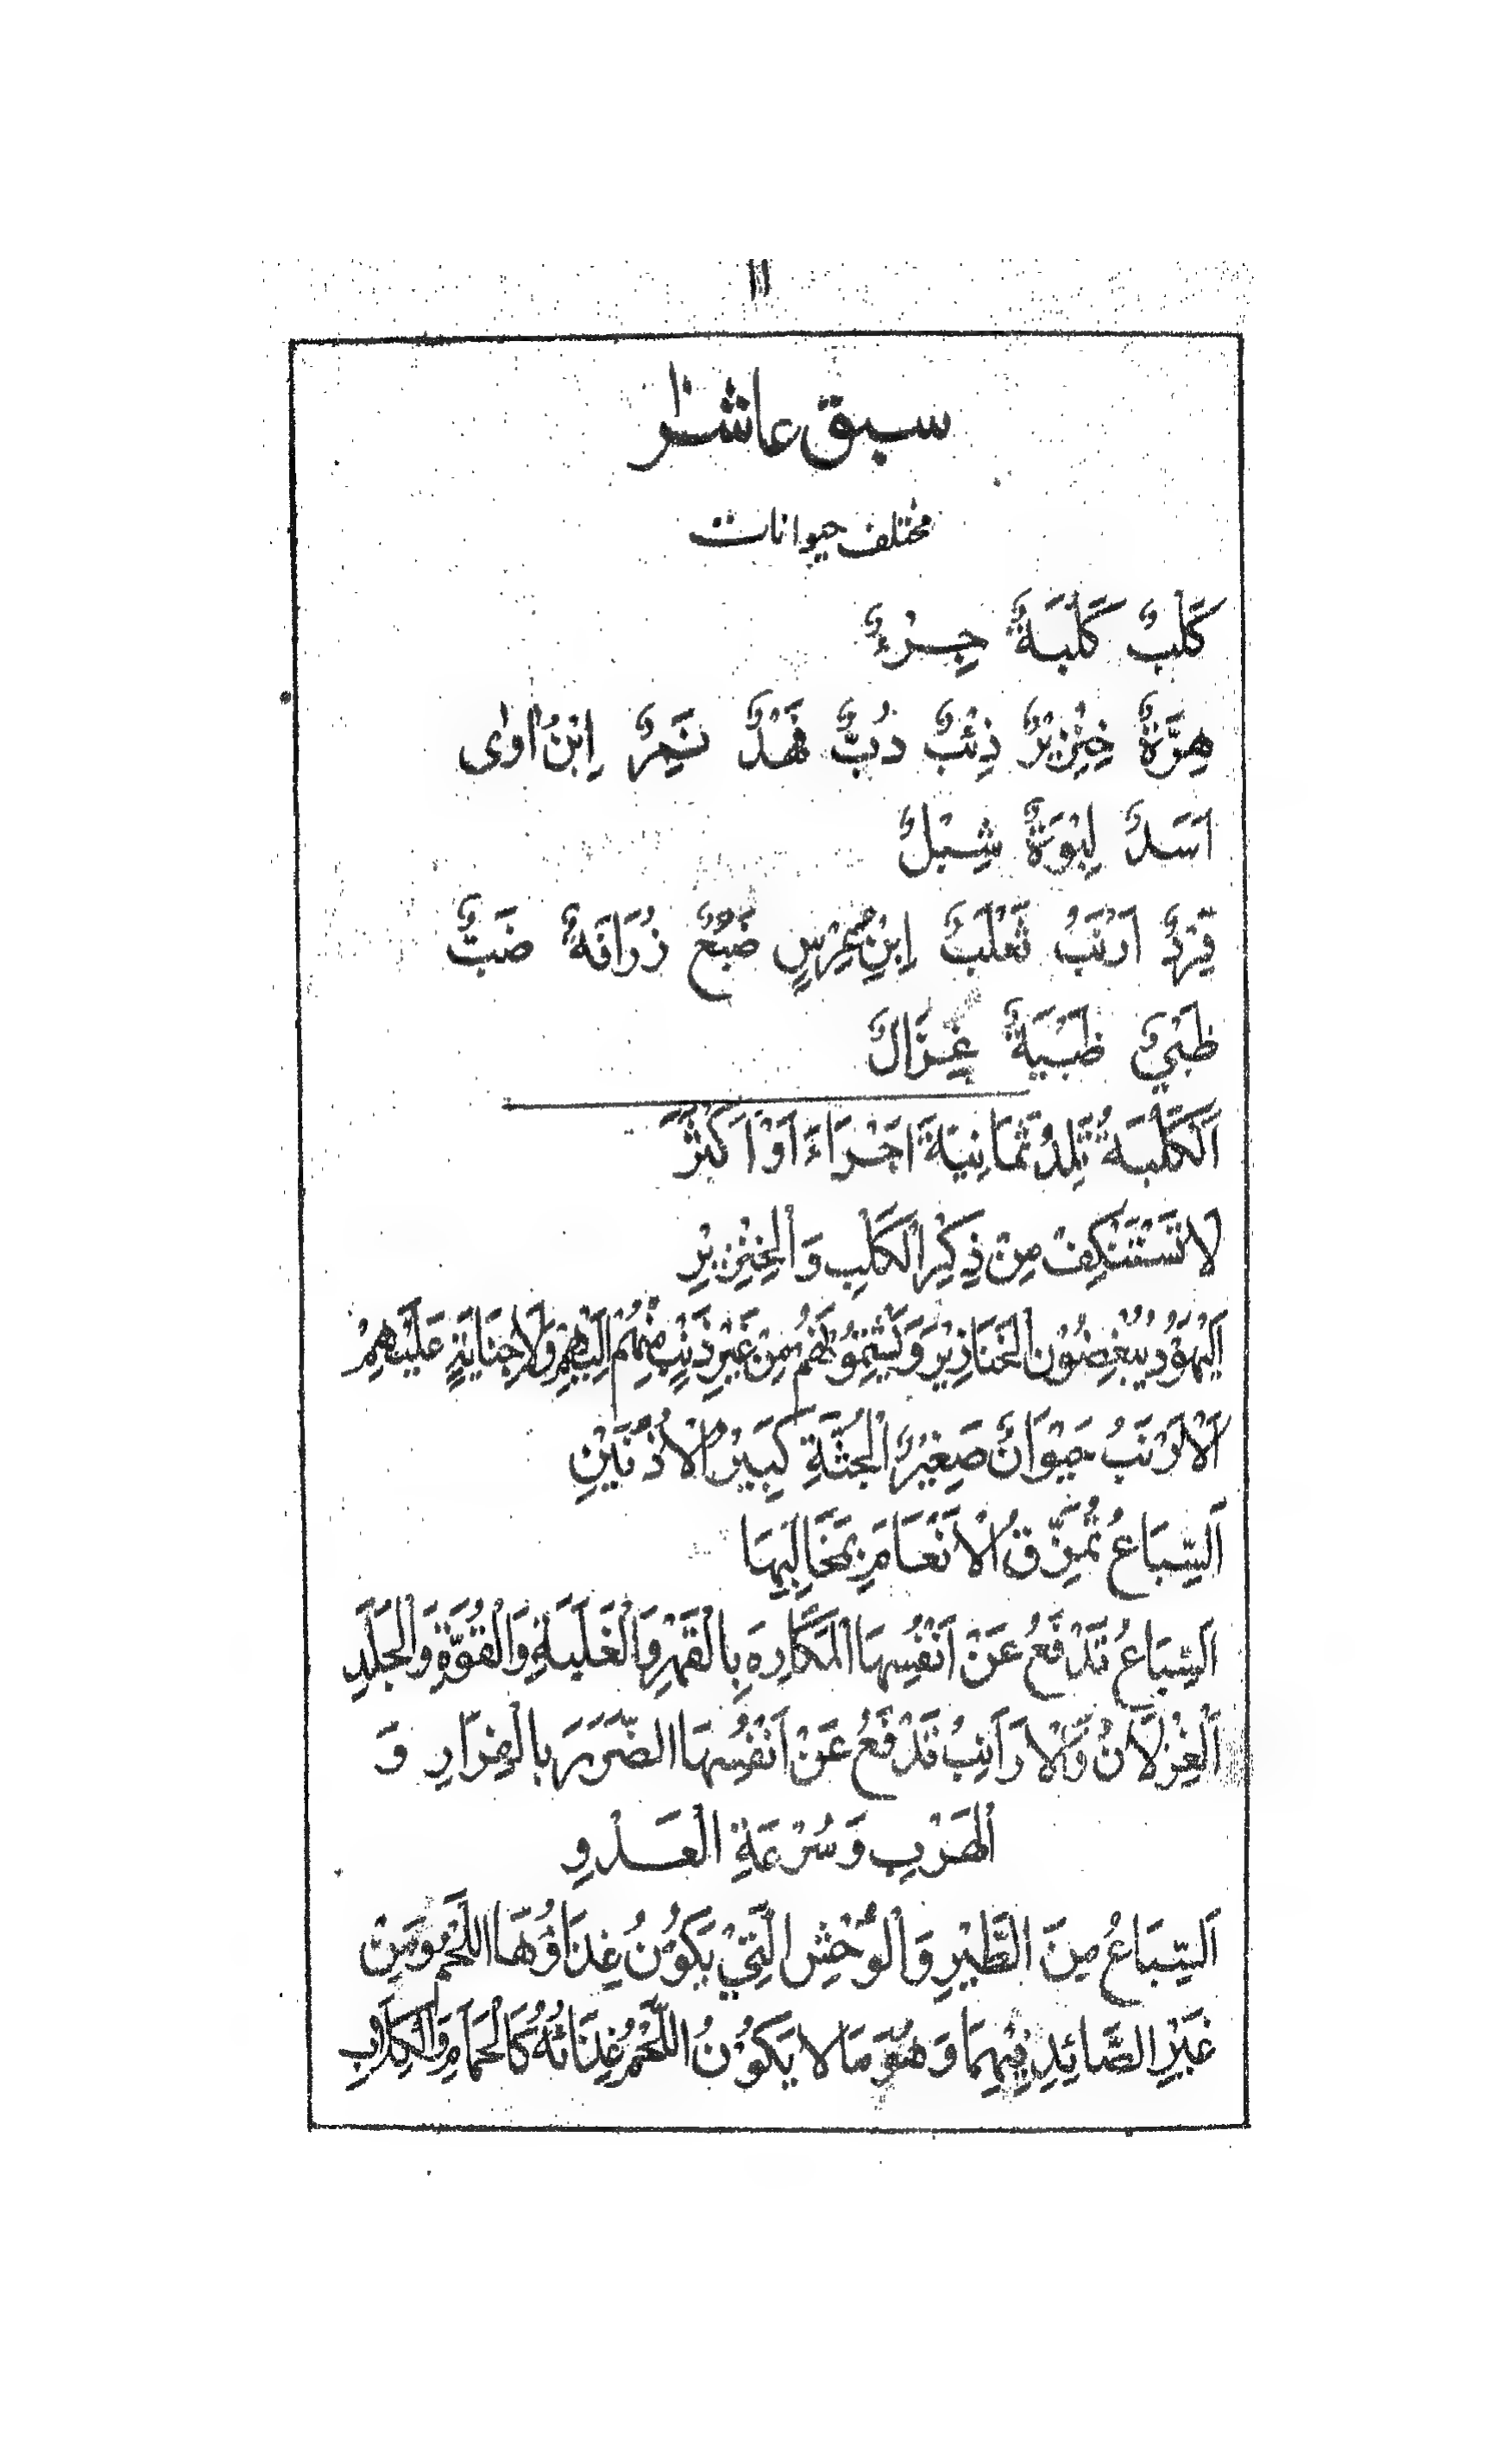 ۱۱
سبق عاشر
مختلف حیوانات
كَلْبٌ كَلْبَةٌ جِرْءٌ
هِرَّةٌ خِنْزِيْرٌ ذِئْبٌ دُبٌّ فَهْدٌ نَمِرٌ اِبْنُ اٰوٰى
اَسَدٌ لِبْوَةٌ شِبْلٌ
قِرْدٌ اَرْنَبُ ثَعْلَبٌ اِبْنِ عِرْسٍ ضَبُعٌ زُرَافَةٌ ضَبٌّ
ظَبْيٌ ظَبْيَةٌ غِزَالٌ
اَلْكَلْبَةُ تَلِدُ ثَمَانِيَةَ اَجْرَاءَ اَوْ اَكْثَرَ
لَا تَسْتَنْكِفْ مِنْ ذِكْرِ الْكَلْبِ وَالْخِنْزِيْرِ
اَلْيَهُوْدُ يُبْغِضُوْنَ الْخَنَازِيْرَ وَيَشْتِمُوْنَهُمْ مِنْ غَيْرِ ذَنْبٍ مِنْهُمْ اِلَيْهِمْ وَلَا جِنَايَةٍ عَلَيْهِمْ
اَلْاَرْنَبُ حَيْوَانٌ صَغِيْرُ الْجُثَّةِ كَبِيْرُ الْاُذُنَيْنِ
اَلسِّبَاعُ تُمَزِّقُ الْاَنْعَامَ بِمَخَالِبِهَا
اَلسِّبَاعُ تَدْفَعُ عَنْ اَنْفُسِهَا الْمَكَارِهَ بِالْقَهْرِ وَالْغَلَبَةِ وَالْقُوَّةِ وَالْجَلَدِ
اَلْغِزْلَانُ وَالْاَرَانِبُ تَدْفَعُ عَنْ اَنْفُسِهَا الضَّرَرَ بِالْفِرَارِ وَ
الْهَرْبِ وَسُرْعَةِ الْعَدْوِ
اَلسِّبَاعُ مِنَ الطَّيْرِ وَالْوُحْشِ الَّتِيْ يَكُوْنُ غِذَاؤُهَا اللَّحْمُ وَمِنْ
غَيْرِ الصَّائِدِ فِيْهِمَا وَهُوَ مَا لَا يَكُوْنُ اللَّحْمُ غِذَائَهُ كَالْحَمَامِ وَالْكِلَابِ